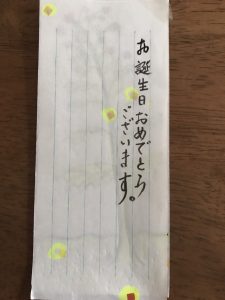 お誕生日おめでとう
ございます。